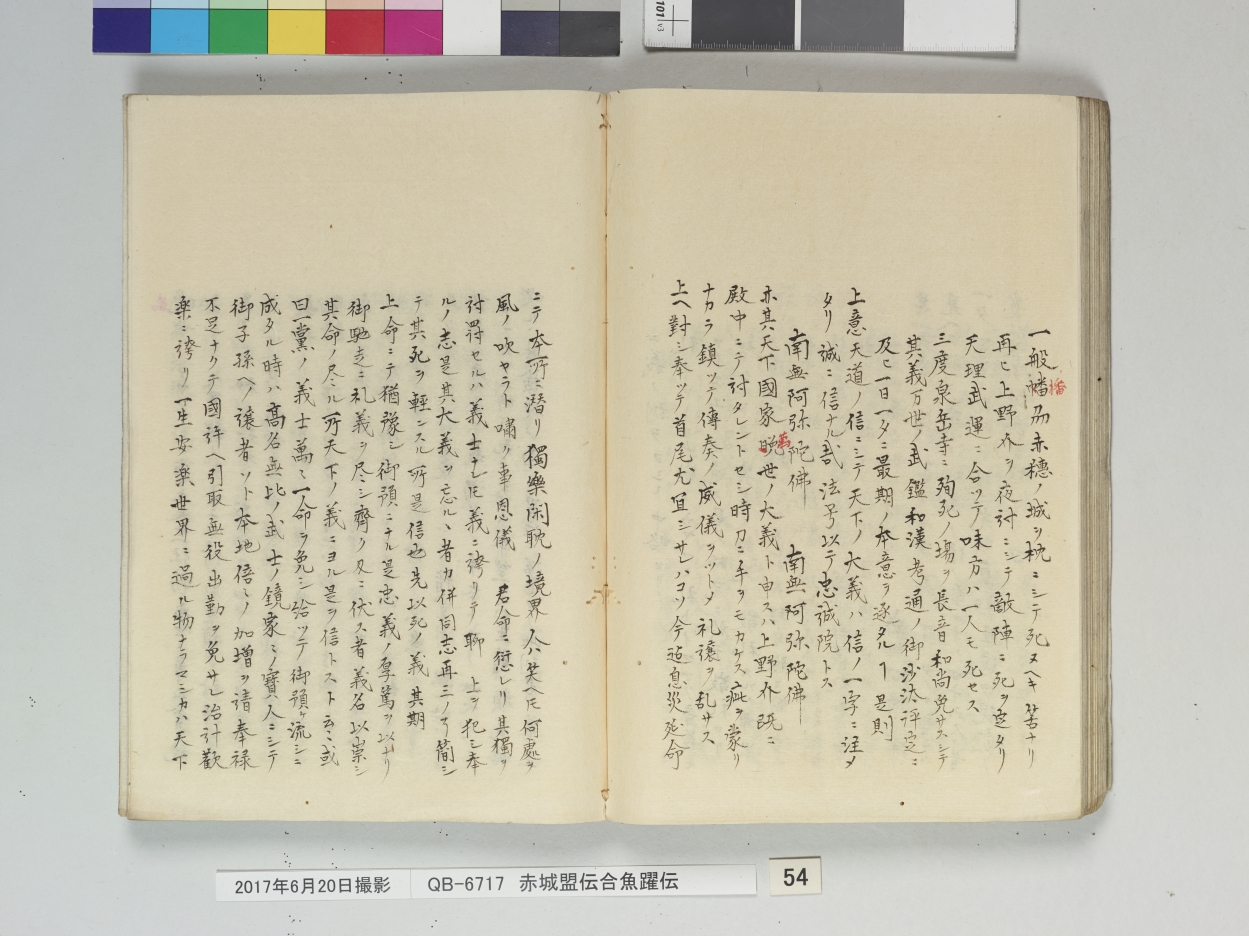 一般幡刕赤穂ノ城ヲ枕ニシテ死ヌヘキ筈ナリ
播
再ヒ上野介ヲ夜討ニシテ敵陣ニ死ヲ定タリ
天理武運ニ合ツテ味方ハ一人モ死セス
三度泉岳寺ニ殉死ノ場ヲ長音和尚免サスシテ
其義万世ノ武鑑和漢考通ノ御沙汰評定ニ
及ヒ一日一夕ニ最期ノ本意ヲ逐タルヿ是則
上意天道ノ信ニシテ天下ノ大義ハ信ノ一字ニ注メ
タリ誠ニ信ナル哉法号以テ忠誠院トス
南無阿弥陀佛 南無阿弥陀佛
亦其天下國家晩世ノ大義ト申スハ上野介既ニ
萬
殿中ニテ討タレントセシ時刀ニ手ヲモカケス疵ヲ蒙リ
ナカラ鎮ツテ傳奏ノ威儀ヲツトメ礼譲ヲ乱サス
上ヘ對シ奉ツテ首尾尤宜シサレハコソ今迠息災延命
ニテ本所ニ潜リ獨樂閑耽ノ境界人ハ笑ヘ𪜈何處ヲ
風ノ吹ヤラト嘯ク事恩儀 君命ニ愆レリ其獨ヲ
討罸セルハ義士ナレ𪜈義ニ誇リテ聊 上ヲ犯シ奉
ルノ志是其大義ヲ忘ルヽ者カ併同志再三ノ了簡シ
テ其死ヲ輕ンスル所是信也先以死ノ義其期
上命ニテ猶豫シ御預ニナル是忠義ノ厚篤ヲ以ナリ
御馳走ニ礼義ヲ尽シ齊ク刄ニ伏ス者義名以崇シ
其命ノ尽ル所天下ノ義ニヨル是ヲ信トスト云々或
曰一黨ノ義士萬々一命ヲ免シ給ツテ御預ケ流シニ
成タル時ハ髙名無比ノ武士ノ鏡家々ノ寳人ニシテ
御子孫ヘノ譲者ソト本地倍々ノ加増ヲ請奉禄
不足ナクテ國許ヘ引取無役出勤ヲ免サレ治計歡
楽ニ誇リ一生安楽世界ニ過ル物ナラマシカハ天下
2017年6月20日撮影 QB-6717 赤城盟伝合魚躍伝
54